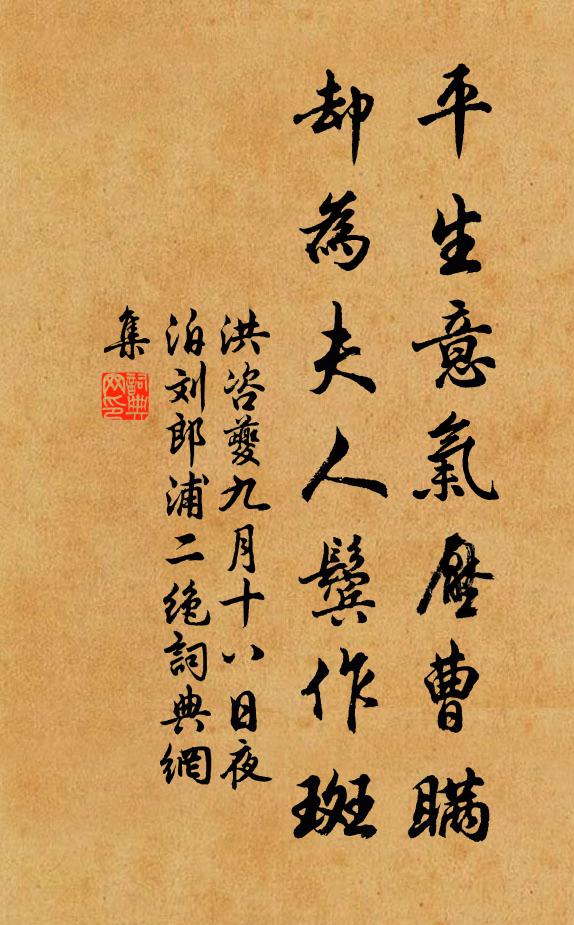 平生意氣壓曹瞞
却為夫人鬢作斑
洪咨夔九月十八日夜
泊刘郎浦二绝詞典網
集
詞典網印